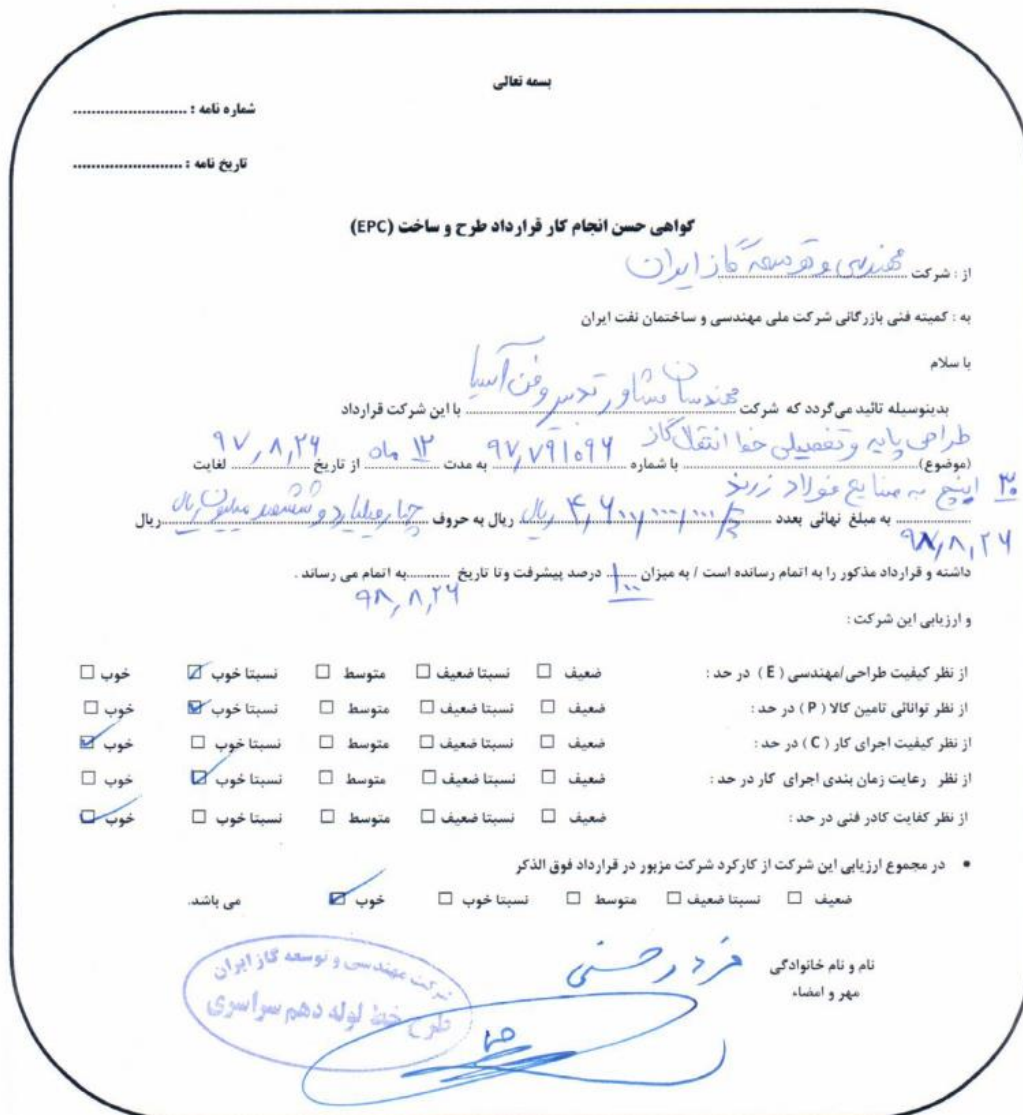 بسمه تعالی
شماره نامه : ..........................
تاریخ نامه : ..........................
گواهی حسن انجام کار قرارداد طرح و ساخت (EPC)
از : شرکت مهندسی و توسعه گاز ایران
به : کمیته فنی بازرگانی شرکت ملی مهندسی و ساختمان نفت ایران
با سلام
بدینوسیله تائید می‌گردد که شرکت مهندسان مشاور تدبیر و فن آسیا با این شرکت قرارداد
(موضوع) طراحی پایه و تفصیلی خط انتقال گاز با شماره ۹۷,۷۹۱۰۹۶ به مدت ۱۲ ماه از تاریخ ۹۷,۸,۲۶ لغایت
۳۰ اینچ به صنایع فولاد زرند
۹۸,۸,۲۶ به مبلغ نهائی بعدد ۴,۶۰۰,۰۰۰,۰۰۰ ریال ریال به حروف چهار میلیارد و ششصد میلیون ریال ریال
داشته و قرارداد مذکور را به اتمام رسانده است / به میزان ۱۰۰ درصد پیشرفت وتا تاریخ ۹۸,۸,۲۶ به اتمام می رساند .
و ارزیابی این شرکت :
از نظر کیفیت طراحی/مهندسی ( E ) در حد : ضعیف ☐ نسبتا ضعیف ☐ متوسط ☐ نسبتا خوب ☑ خوب ☐
از نظر توانائی تامین کالا ( P ) در حد : ضعیف ☐ نسبتا ضعیف ☐ متوسط ☐ نسبتا خوب ☑ خوب ☐
از نظر کیفیت اجرای کار ( C ) در حد : ضعیف ☐ نسبتا ضعیف ☐ متوسط ☐ نسبتا خوب ☐ خوب ☑
از نظر رعایت زمان بندی اجرای کار در حد : ضعیف ☐ نسبتا ضعیف ☐ متوسط ☐ نسبتا خوب ☑ خوب ☐
از نظر کفایت کادر فنی در حد : ضعیف ☐ نسبتا ضعیف ☐ متوسط ☐ نسبتا خوب ☐ خوب ☑
• در مجموع ارزیابی این شرکت از کارکرد شرکت مزبور در قرارداد فوق الذکر
ضعیف ☐ نسبتا ضعیف ☐ متوسط ☐ نسبتا خوب ☐ خوب ☑ می باشد.
نام و نام خانوادگی
مهر و امضاء
شرکت مهندسی و توسعه گاز ایران
طرح خط لوله دهم سراسری